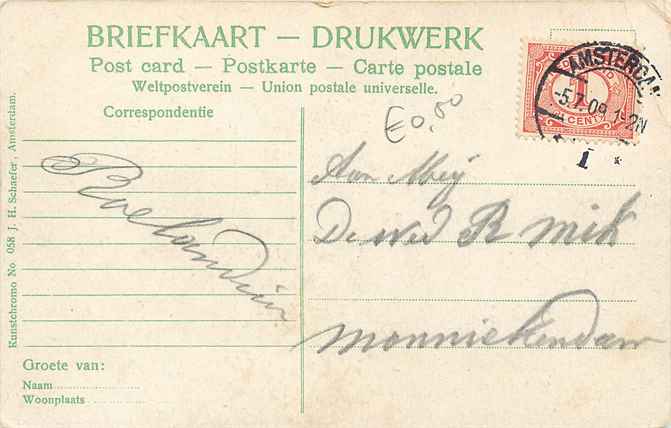 BRIEFKAART — DRUKWERK
Post card — Postkarte — Carte postale
Weltpostverein — Union postale universelle.
Correspondentie
€0,50
NEDERLAND
1
CENT
AMSTERDAM
-5.7.09.1-2N
1 *
Aan Mej
De wed R Mik
Monnickendam
Groete van:
Naam
Woonplaats
Kunstchromo No. 058 J. H. Schaefer, Amsterdam.